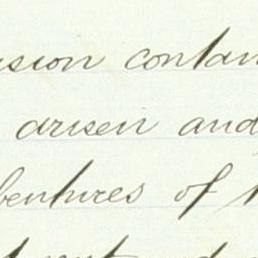 ision contain
arisen and
bentures of